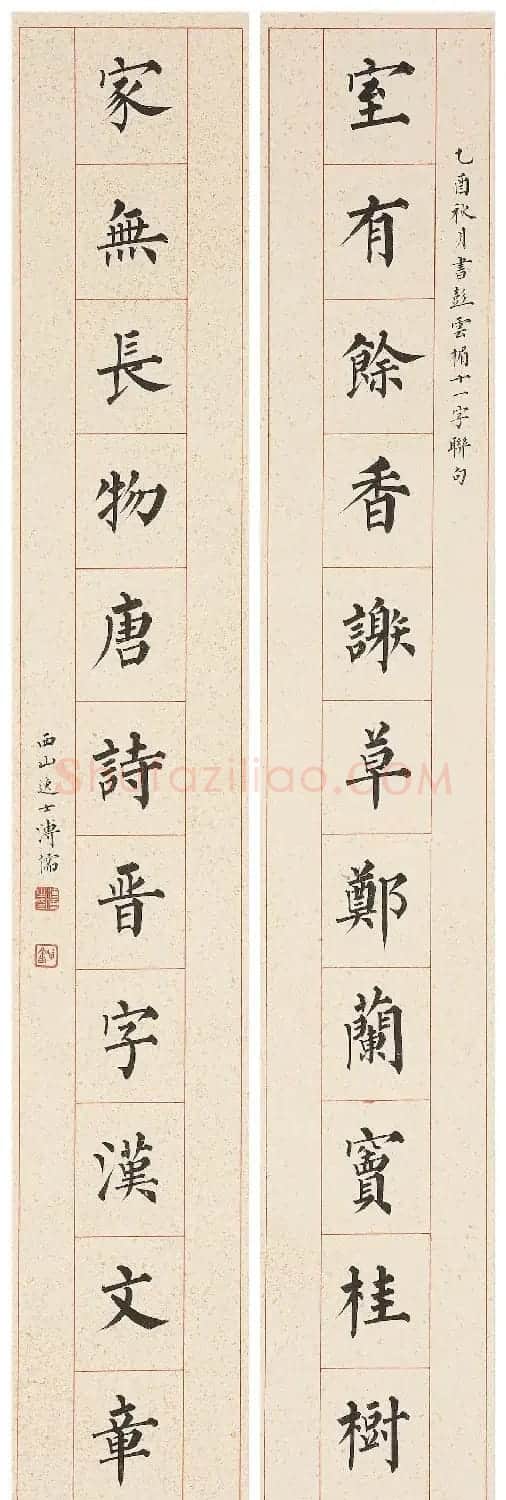 乙酉秋月書彭雲楣十一字聯句
室有餘香謝草鄭蘭竇桂樹
家無長物唐詩晋字漢文章
西山逸士溥儒
Shufaziliao.COM